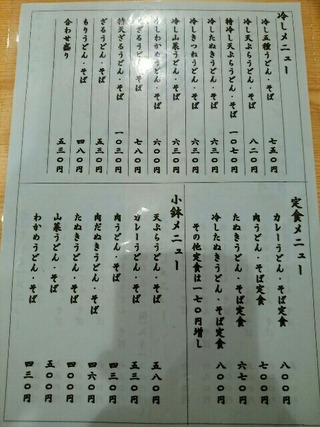 冷しメニュー
冷し五種うどん・そば 七五〇円
冷し天ぷらうどん・そば 八二〇円
特冷し天ぷらうどん・そば 一〇七〇円
冷したぬきうどん・そば 六三〇円
冷しきつねうどん・そば 六三〇円
冷し山菜うどん・そば 六三〇円
冷しわかめうどん・そば 六〇〇円
天ざるうどん・そば 七八〇円
特天ざるうどん・そば 一〇三〇円
ざるうどん・そば 五三〇円
もりうどん・そば 四八〇円
合わせ盛り 五三〇円
定食メニュー
カレーうどん・そば定食 八〇〇円
肉うどん・そば定食 七〇〇円
たぬきうどん・そば定食 六七〇円
冷したぬきうどん・そば定食 八〇〇円
その他定食は一七〇円増し
小鉢メニュー
天ぷらうどん・そば 五八〇円
カレーうどん・そば 五三〇円
肉うどん・そば 四三〇円
肉だぬきうどん・そば 四六〇円
たぬきうどん・そば 四三〇円
山菜うどん・そば 五〇〇円
わかめうどん・そば 四三〇円